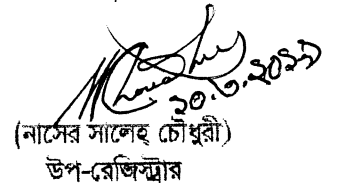 ২০.৩.২০১১
(নাসের সালেহ চৌধুরী)
উপ-রেজিস্ট্রার